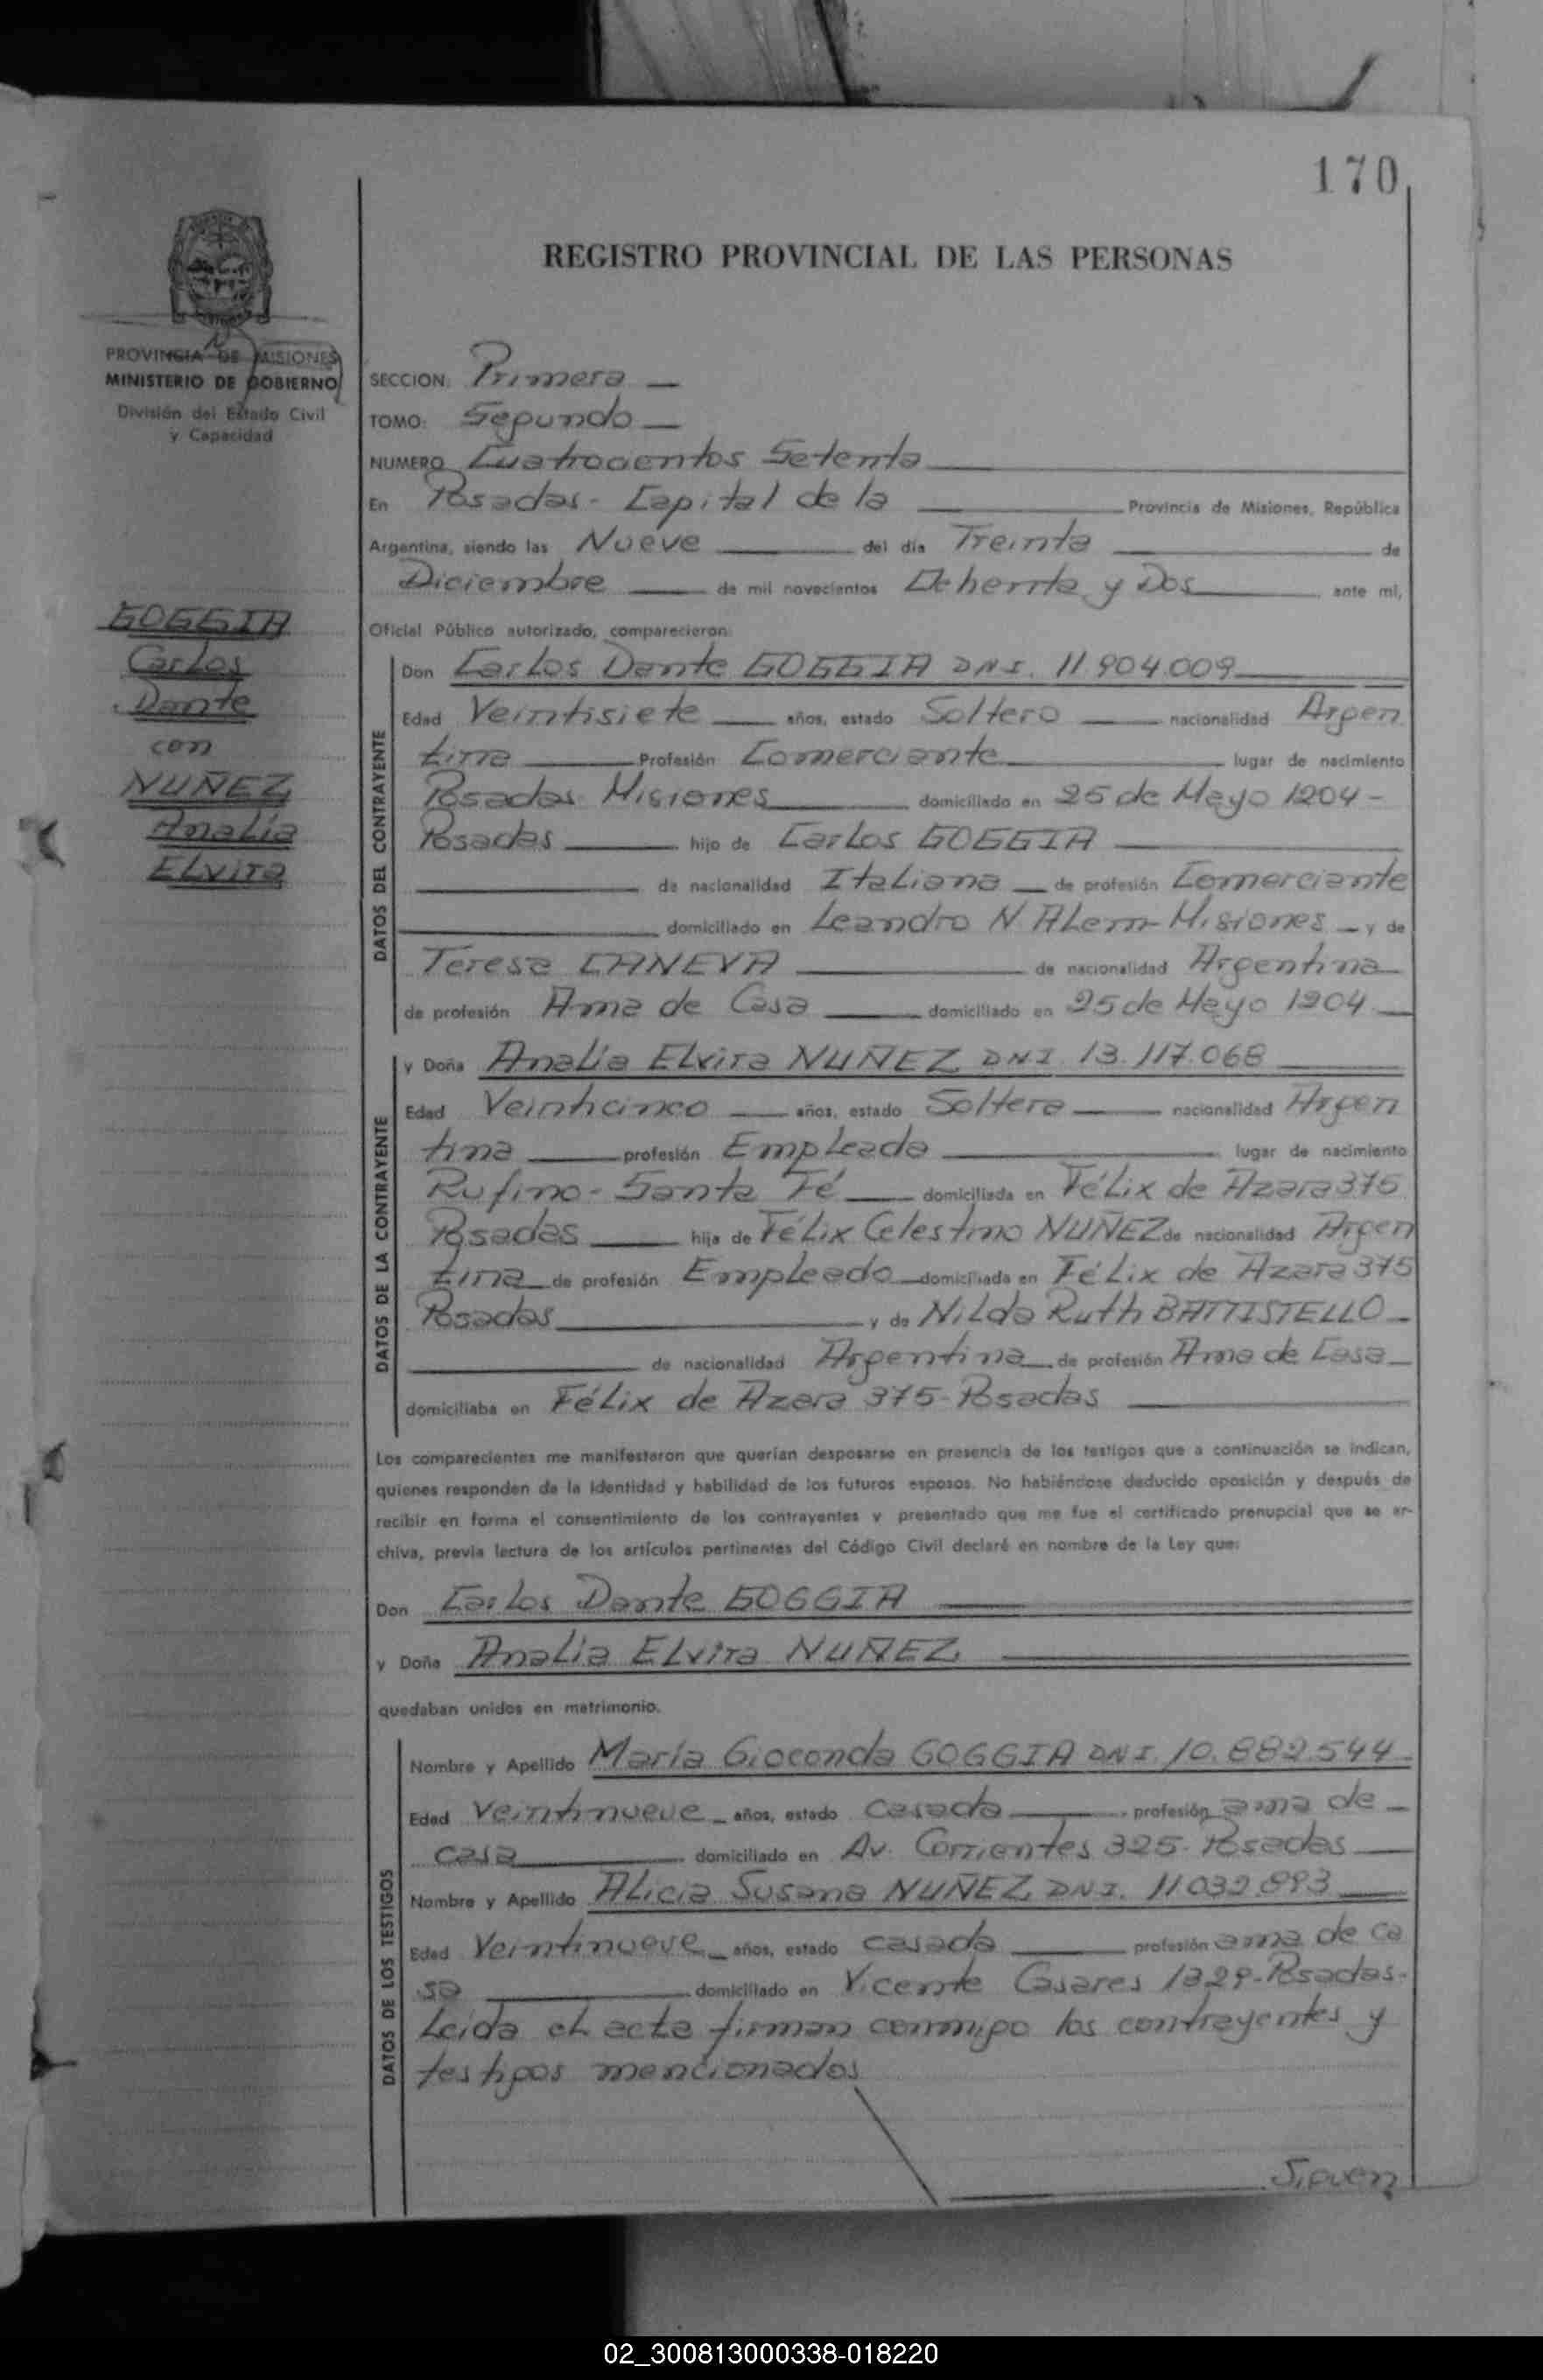 170
REGISTRO PROVINCIAL DE LAS PERSONAS
PROVINCIA DE MISIONES
MINISTERIO DE GOBIERNO
División del Estado Civil
y Capacidad
GOGGIA
Carlos
Dante
con
NUÑEZ
Analía
Elvira
SECCION: Primera
TOMO: Segundo
NUMERO Cuatrocientos Setenta
En Posadas - Capital de la Provincia de Misiones, República
Argentina, siendo las Nueve del día Treinta de
Diciembre de mil novecientos Ochenta y Dos ante mí,
Oficial Público autorizado, comparecieron:
DATOS DEL CONTRAYENTE
Don Carlos Dante GOGGIA DNI. 11.904.009
Edad Veintisiete años, estado Soltero nacionalidad Argen
tina Profesión Comerciante lugar de nacimiento
Posadas Misiones domiciliado en 25 de Mayo 1204 -
Posadas hijo de Carlos GOGGIA
de nacionalidad Italiana de profesión Comerciante
domiciliado en Leandro N. Alem - Misiones y de
Teresa CANEVA de nacionalidad Argentina
de profesión Ama de Casa domiciliado en 25 de Mayo 1204
DATOS DE LA CONTRAYENTE
y Doña Analía Elvira NUÑEZ DNI. 13.117.068
Edad Veinticinco años, estado Soltera nacionalidad Argen
tina profesión Empleada lugar de nacimiento
Rufino - Santa Fé domiciliada en Félix de Azara 375
Posadas hija de Félix Celestino NUÑEZ de nacionalidad Argen
tina de profesión Empleado domiciliada en Félix de Azara 375
Posadas y de Nilda Ruth BATTISTELLO
de nacionalidad Argentina de profesión Ama de Casa
domiciliaba en Félix de Azara 375 - Posadas
Los comparecientes me manifestaron que querían desposarse en presencia de los testigos que a continuación se indican,
quienes responden de la identidad y habilidad de los futuros esposos. No habiéndose deducido oposición y después de
recibir en forma el consentimiento de los contrayentes y presentado que me fue el certificado prenupcial que se ar-
chiva, previa lectura de los artículos pertinentes del Código Civil declaré en nombre de la Ley que:
Don Carlos Dante GOGGIA
y Doña Analia Elvira NUÑEZ
quedaban unidos en matrimonio.
DATOS DE LOS TESTIGOS
Nombre y Apellido María Gioconda GOGGIA DNI. 10.882.544
Edad Veintinueve años, estado casada profesión ama de
casa domiciliado en Av. Corrientes 325 - Posadas
Nombre y Apellido Alicia Susana NUÑEZ DNI. 11032.893
Edad Veintinueve años, estado casada profesión ama de ca
sa domiciliado en Vicente Casares 1329 - Posadas -
Leida el acta firman conmigo los contrayentes y
testigos mencionados
Siguen
02_300813000338-018220